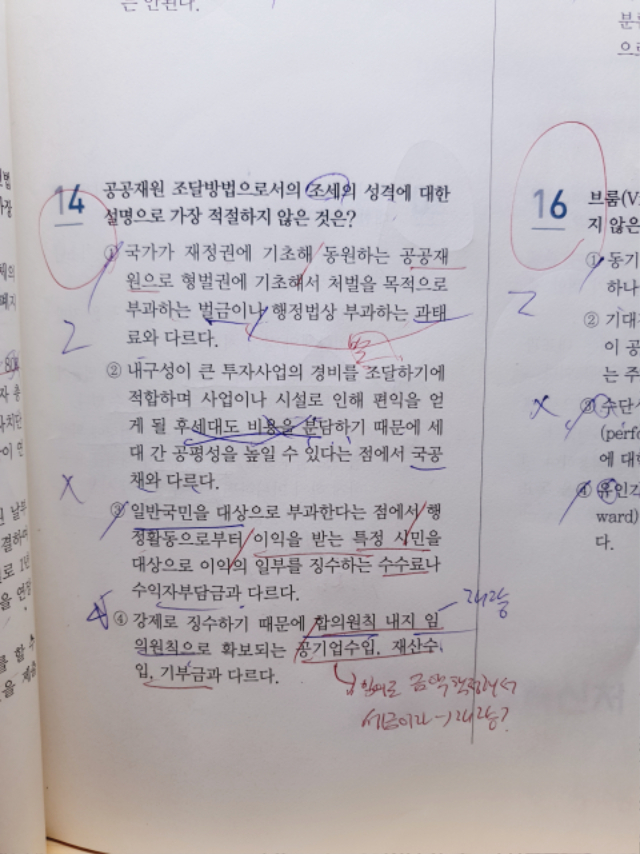 는 안된다.
14
공공재원 조달방법으로서의 조세의 성격에 대한
설명으로 가장 적절하지 않은 것은?
① 국가가 재정권에 기초해 동원하는 공공재
원으로 형벌권에 기초해서 처벌을 목적으로
부과하는 벌금이나 행정법상 부과하는 과태
료와 다르다.
벌
2
② 내구성이 큰 투자사업의 경비를 조달하기에
적합하며 사업이나 시설로 인해 편익을 얻
게 될 후세대도 비용을 분담하기 때문에 세
대 간 공평성을 높일 수 있다는 점에서 국공
채와 다르다.
③ 일반국민을 대상으로 부과한다는 점에서 행
정활동으로부터 이익을 받는 특정 시민을
대상으로 이익의 일부를 징수하는 수수료나
수익자부담금과 다르다.
④ 강제로 징수하기 때문에 합의원칙 내지 임
의원칙으로 확보되는 공기업수입, 재산수
입, 기부금과 다르다.
16
브룸(V
지 않은
① 동기
하나
② 기대
이 공
는 주
③ 수단
(perfo
에 대
④ 유인
ward)
다.